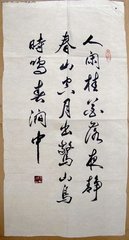 人闲桂花落夜静
春山空月出惊山鸟
时鸣春涧中